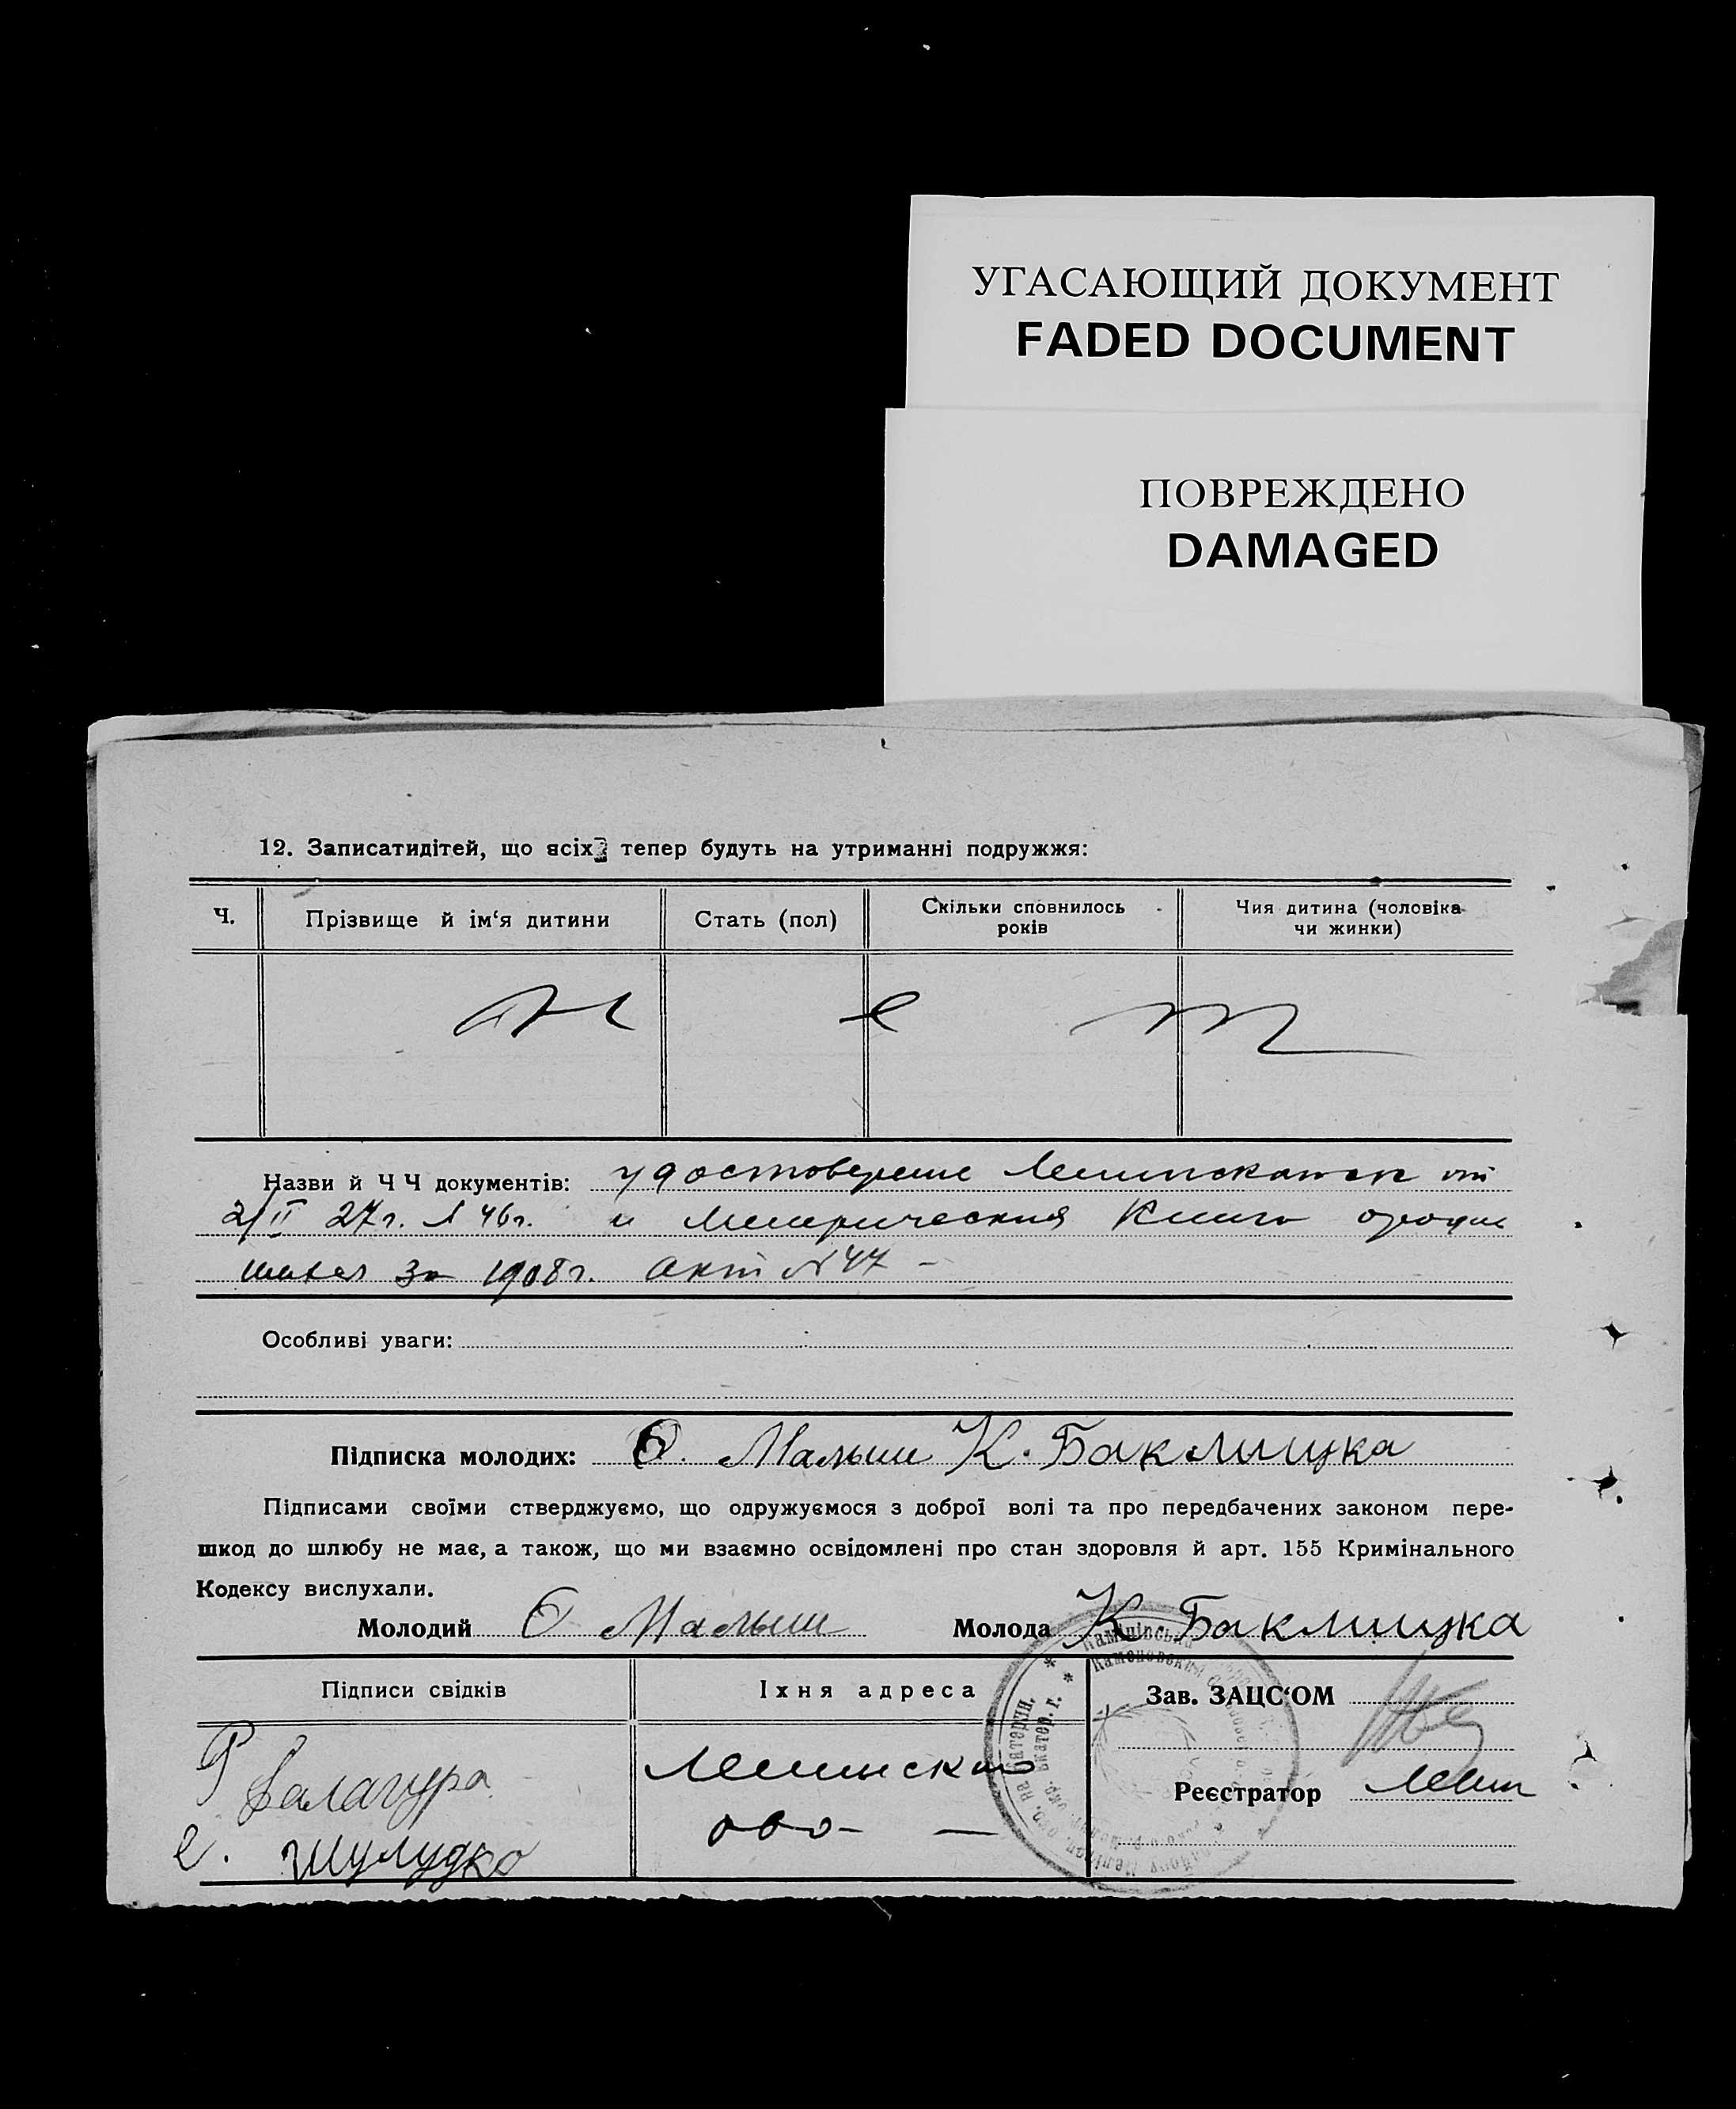 УГАСАЮЩИЙ ДОКУМЕНТ
FADED DOCUMENT
ПОВРЕЖДЕНО
DAMAGED
12. Записатидітей, що всіх тепер будуть на утриманні подружжя:
Ч. Прізвище й ім‘я дитини Стать (пол) Скільки сповнилось років Чия дитина (чоловіка чи жинки)
н е т
Назви й Ч Ч документів: удостоверение от
2/II 27г. № 46г. и Метрическия Книга
за 1908г. акт № 47 –
Особливі уваги:
Підписка молодих: О. Малыш К. Баклицка
Підписами своїми стверджуємо, що одружуємося з доброї волі та про передбачених законом пере-
шкод до шлюбу не має, а також, що ми взаємно освідомлені про стан здоровля й арт. 155 Кримінального
Кодексу вислухали.
Молодий О Малыш Молода К. Баклицка
Підписи свідків Їхня адреса Зав. ЗАЦС‘ОМ
Балагура
Реєстратор
Шулудко